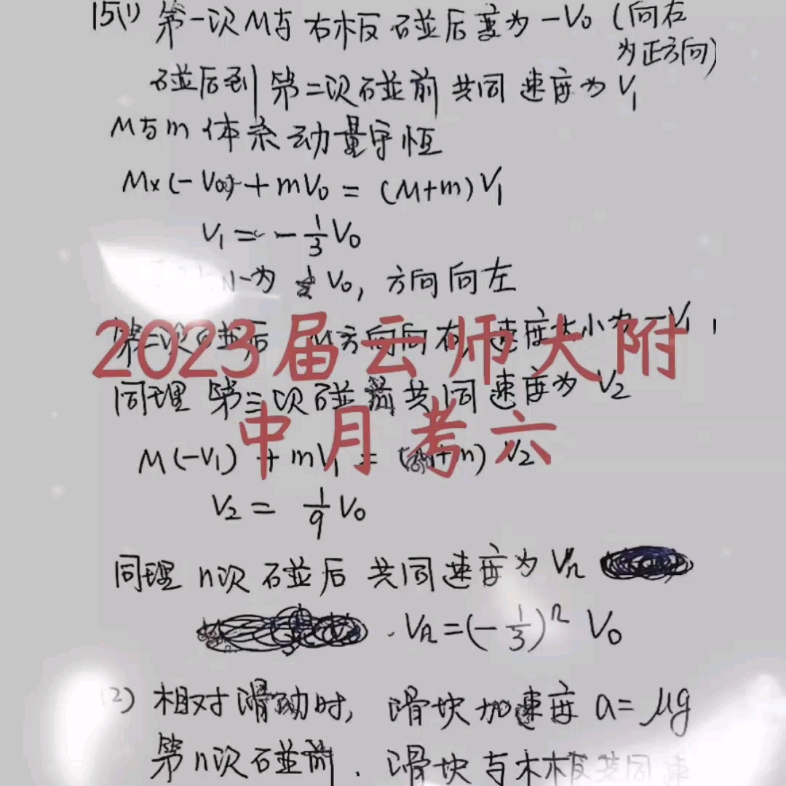 15(1) 第一次M与右板碰后速度为-V₀ (向右
为正方向)
碰后到第二次碰前共同速度为V₁
M与m体系动量守恒
M×(-V₀)+mV₀=(M+m)V₁
V₁=-⅓V₀
为 V₀, 方向向左
2023届云师大附
第二次碰后 M方向向右 速度大小为-V₁
同理 第三次碰前共同速度为V₂
中月考六
M(-V₁)+mV₁=(M+m)V₂
V₂=1/9 V₀
同理 n次碰后 共同速度为Vn
Vn=(-⅓)ⁿ V₀
(2) 相对滑动时, 滑块加速度 a=μg
第n次碰前. 滑块与木板共同速